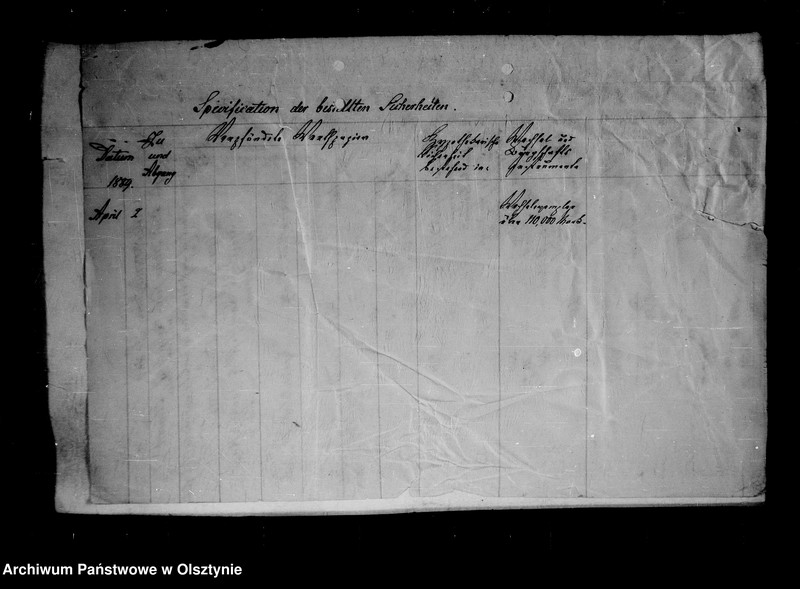 Specification der bestellten Sicherheiten.
Datum
1879.
Zu
und
Abgang
Verpfändete Werthpapiere
Hypothekarische
Sicherheit
bestehend in:
Wechsel des
Bürgschafts
Instruments
April 2
Wechselexemplar
über 110,000 Mark.
Archiwum Państwowe w Olsztynie